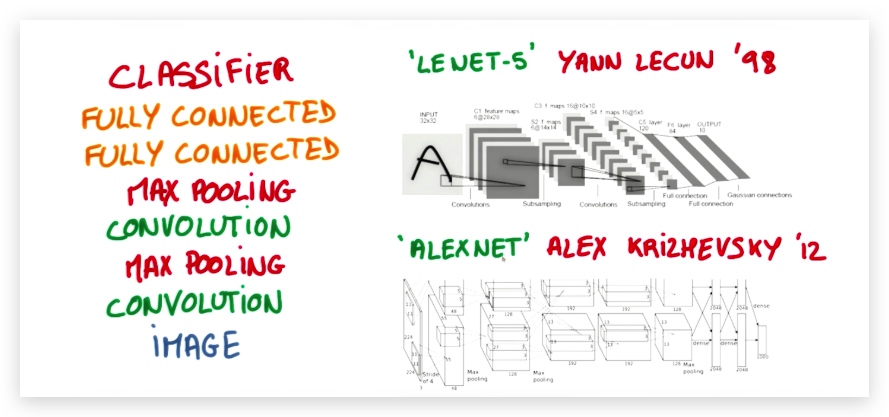 CLASSIFIER
FULLY CONNECTED
FULLY CONNECTED
MAX POOLING
CONVOLUTION
MAX POOLING
CONVOLUTION
IMAGE
'LENET-5' YANN LECUN '98
INPUT
32x32
C1: feature maps
6@28x28
S2: f. maps
6@14x14
C3: f. maps 16@10x10
S4: f. maps 16@5x5
C5: layer
120
F6: layer
84
OUTPUT
10
A
Convolutions
Subsampling
Convolutions
Subsampling
Full connection
Full connection
Gaussian connections
'ALEXNET' ALEX KRIZHEVSKY '12
48
128
192
192
128
2048
2048
dense
224
55
27
13
13
192
192
128
Max
pooling
dense
dense
1000
224
Stride
of 4
48
Max
pooling
128
Max
pooling
2048
2048